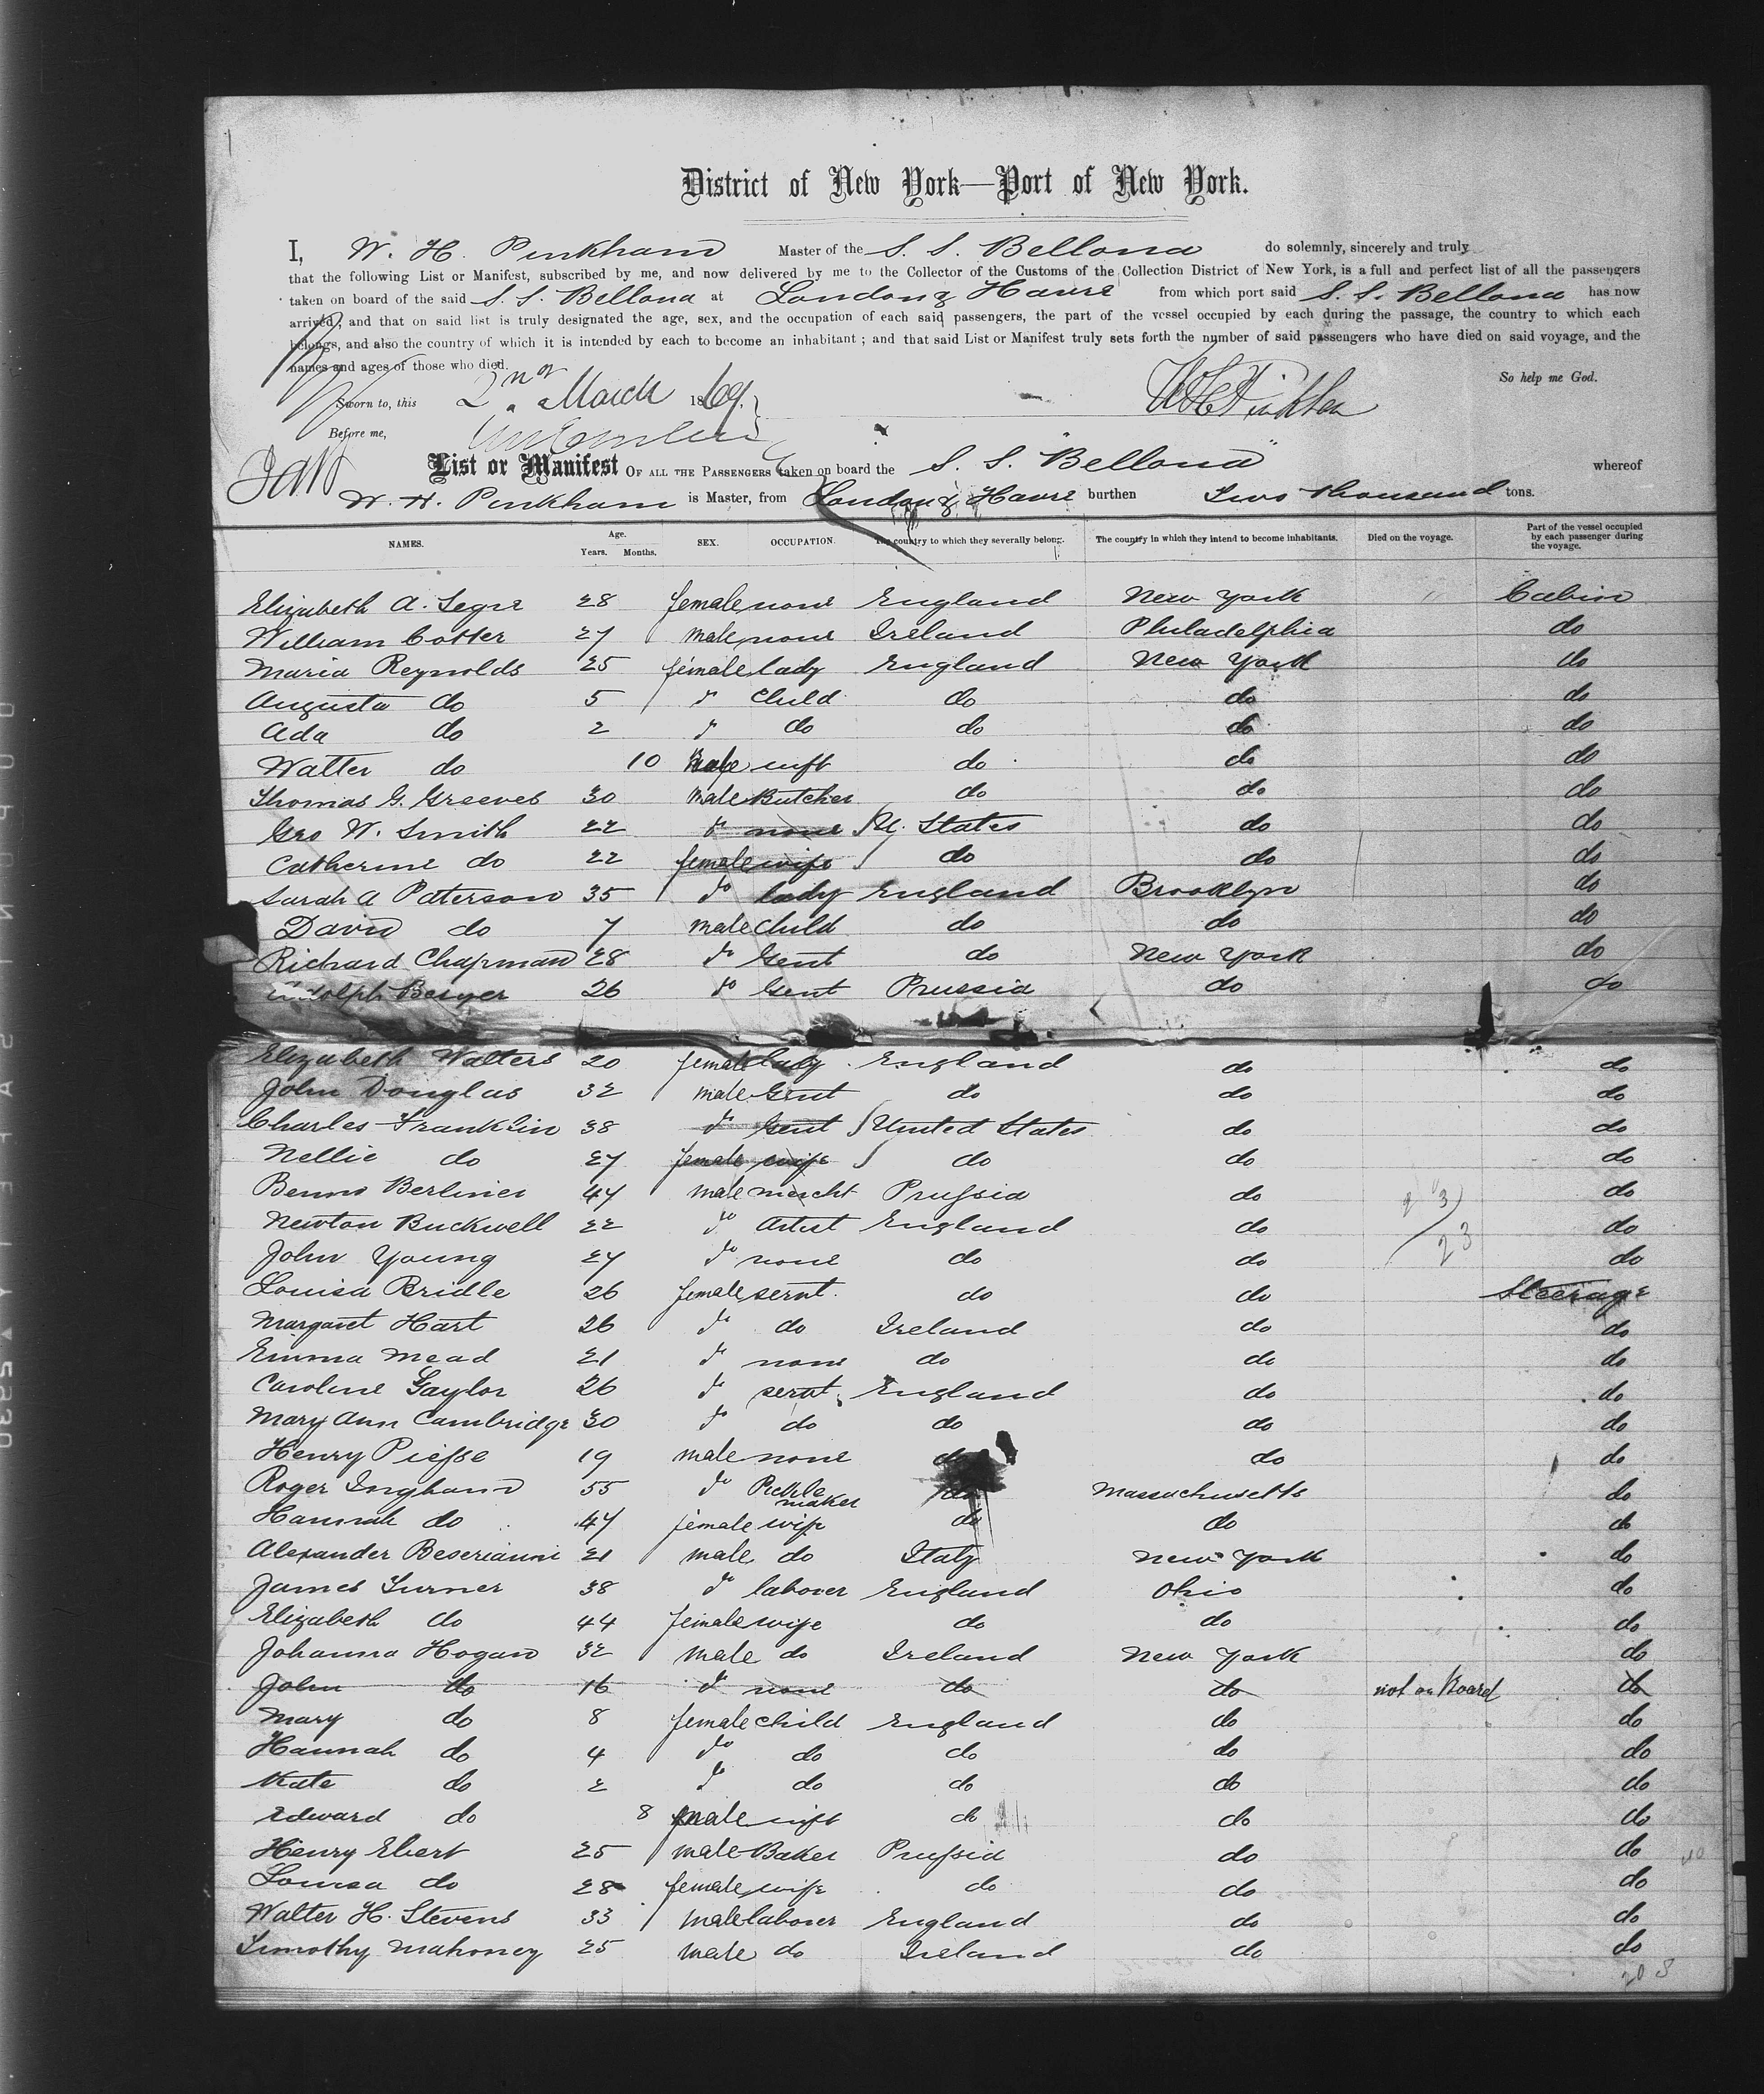 District of New York—Port of New York.
I, W. H. Pinkham Master of the S. S. Bellona do solemnly, sincerely and truly
that the following List or Manifest, subscribed by me, and now delivered by me to the Collector of the Customs of the Collection District of New York, is a full and perfect list of all the passengers
taken on board of the said S. S. Bellona at London & Havre from which port said S. S. Bellona has now
arrived; and that on said list is truly designated the age, sex, and the occupation of each said passengers, the part of the vessel occupied by each during the passage, the country to which each
belongs, and also the country of which it is intended by each to become an inhabitant; and that said List or Manifest truly sets forth the number of said passengers who have died on said voyage, and the
names and ages of those who died.
So help me God.
Sworn to, this 2nd March 1869.
Before me,
List or Manifest OF ALL THE PASSENGERS taken on board the S. S. "Bellona" whereof
W. H. Pinkham is Master, from London & Havre burthen Two thousand tons.
NAMES. Age. Years. Months. SEX. OCCUPATION. The country to which they severally belong. The country in which they intend to become inhabitants. Died on the voyage. Part of the vessel occupied by each passenger during the voyage.
Elizabeth A. Segre 28 female none England New York Cabin
William Cotter 27 male none Ireland Philadelphia do
Maria Reynolds 25 female lady England New York do
Augusta do 5 do Child do do do
Ada do 2 do do do do do
Walter do 10 male inft do do do
Thomas G. Greeves 30 male Butcher do do do
Geo W. Smith 22 do none U. States do do
Catherine do 22 female wife do do do
Sarah A Paterson 35 do lady England Brooklyn do
David do 7 male Child do do do
Richard Chapman 28 do Gent do New York do
Berger 26 do Gent Prussia do do
Elizabeth Walters 20 female lady England do do
John Douglas 32 male Gent do do do
Charles Franklin 38 do Gent United States do do
Nellie do 27 female wife do do do
Benno Berliner 47 male mercht Prussia do do
Newton Buckwell 22 do Artist England do do
John Young 27 do none do do do
Louisa Bridle 26 female servt. do do Steerage
Margaret Hart 26 do do Ireland do do
Emma Mead 21 do none do do do
Caroline Gaylor 26 do servt. England do do
Mary Ann Cambridge 30 do do do do do
Henry Piesse 19 male none do do do
Roger Ingham 55 do Pickle maker do Massachusetts do
Hannah do 47 female wife do do do
Alexander 21 male do Italy New York do
James Turner 38 do laborer England Ohio do
Elizabeth do 44 female wife do do do
Johanna Hogan 32 male do Ireland New York do
John do 16 do none do do not on Board do
Mary do 8 female child England do do
Hannah do 4 do do do do do
Kate do 2 do do do do do
Edward do 8 male inft do do do
Henry Ebert 25 male Baker Prussia do do
Louisa do 28 female wife do do do
Walter H. Stevens 33 male laborer England do do
Timothy Mahoney 25 male do Ireland do do